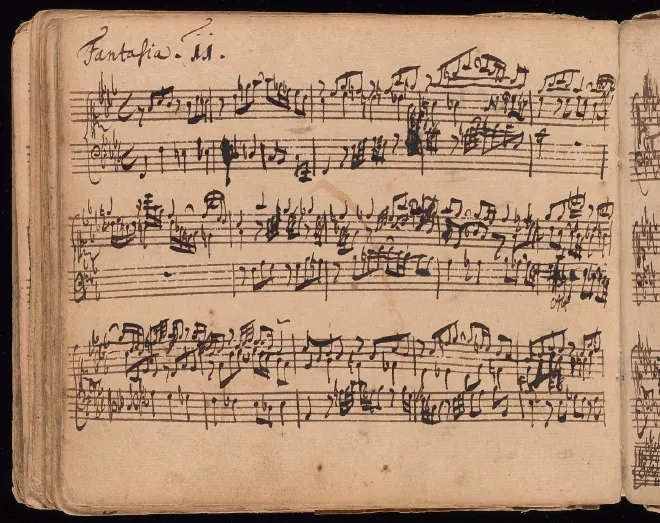 Fantasia. 11.